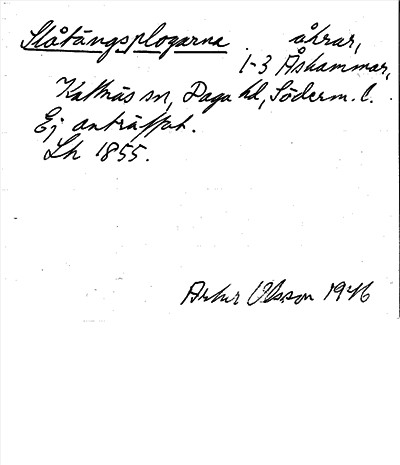 Slåtängsplogarna. åkrar,
1-3 Åshammar,
Kattnäs sn, Daga hd, Söderm. l.
Ej anträffat.
Lh 1855.
Artur Olsson 1946